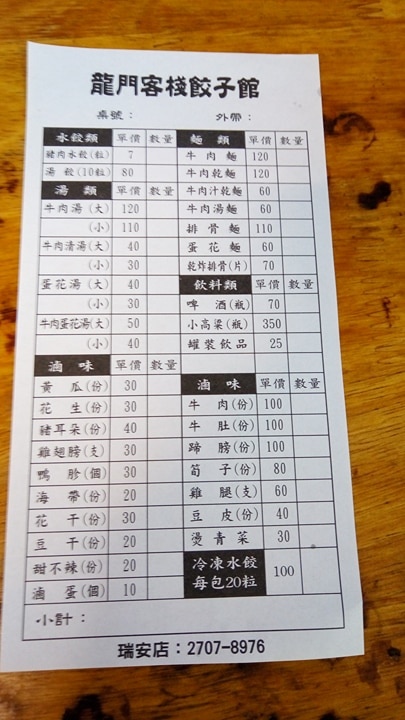 龍門客棧餃子館
桌號： 外帶：
水餃類 單價 數量
豬肉水餃(粒) 7
湯餃(10粒) 80
湯類 單價 數量
牛肉湯(大) 120
(小) 110
牛肉清湯(大) 40
(小) 30
蛋花湯(大) 40
(小) 30
牛肉蛋花湯(大) 50
(小) 40
滷味 單價 數量
黃瓜(份) 30
花生(份) 30
豬耳朵(份) 40
雞翅膀(支) 30
鴨胗(個) 30
海帶(份) 20
花干(份) 30
豆干(份) 20
甜不辣(份) 20
滷蛋(個) 10
麵類 單價 數量
牛肉麵 120
牛肉乾麵 120
牛肉汁乾麵 60
牛肉湯麵 60
排骨麵 110
蛋花麵 60
乾炸排骨(片) 70
飲料類 單價 數量
啤酒(瓶) 70
小高梁(瓶) 350
罐裝飲品 25
滷味 單價 數量
牛肉(份) 100
牛肚(份) 100
蹄膀(份) 100
筍子(份) 80
雞腿(支) 60
豆皮(份) 40
燙青菜 30
冷凍水餃
每包20粒 100
小計：
瑞安店：2707-8976